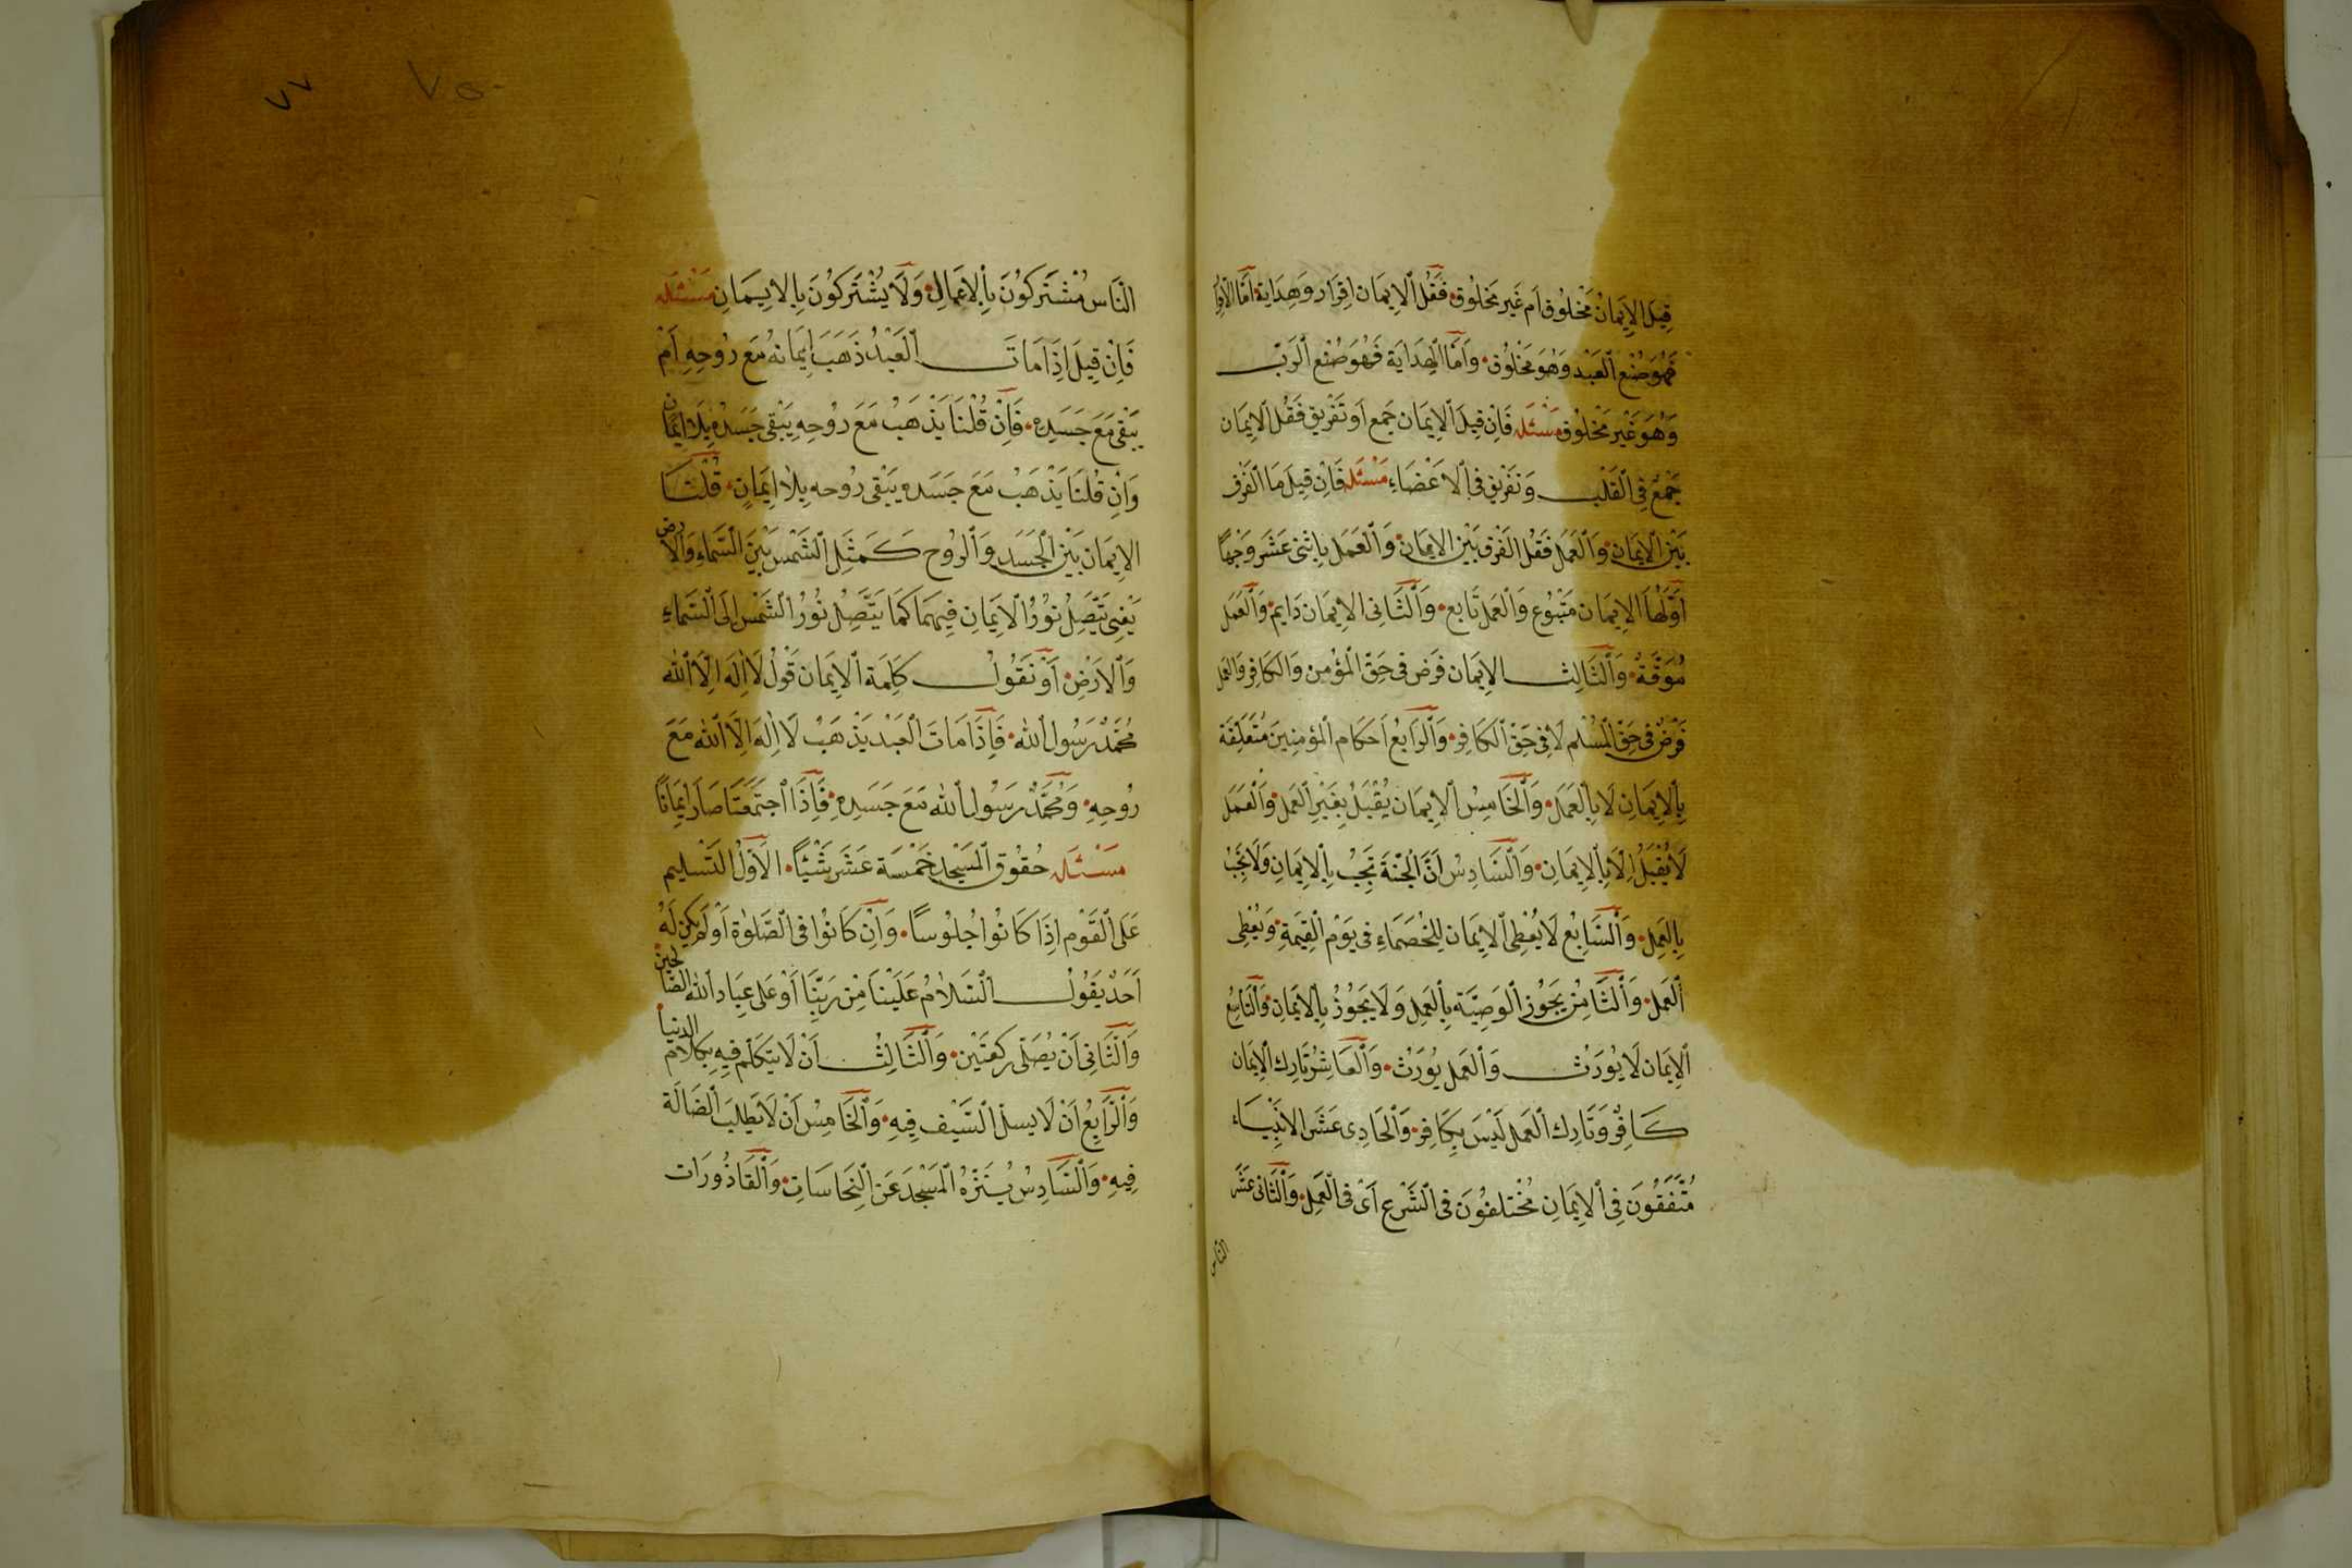 قِيلَ الإِيمَانُ مَخْلُوق اَم غَير مَخلُوق فَقُل الاِيمَان اِقرَار وَهِدَايَة اَمَّا الاِقرَار
فَهُوَ صُنْع العَبْد وَهُوَ مَخْلُوق وَاَمَّا الهِدَايَة فَهُوَ صُنْع الرَبّ
وَهُوَ غَيْر مَخْلُوق مَسْئَله فَاِنْ قِيلَ الاِيمَان جَمع اَو تَفْرِيق فَقُل الاِيمَان
جَمْعٌ فِى القَلْب وَتَفْرِيق فى الاَعْضَاءِ مَسْئَله فَاِنْ قِيلَ مَا الفَرْق
بَيْن الاِيمَان وَالعَمَل فَقُل الفَرْق بَيْن الاِيمَان وَالْعَمَل بِاِثنى عَشَر وَجْهًا
اَوَّلُهَا الاِيمَان مَتْبُوع وَالعَمل تَابع وَالثَّانى الاِيمَان دَايم وَالعَمَل
مُوَقَّةٌ وَالثَّالِث الاِيمَان فَرض فى حَقّ الْمؤمن وَالكَافِر وَالعَمل
فَرْضٌ فى حَقّ المُسْلم لَا فِى حَقّ الكَافِر وَالرَابعُ اَحكَام المؤمِنِينَ مُتَعَلِّقَة
بِالاِيمَانِ لَا بِالعَمَل وَالخَامِسُ الاِيمَان يُقْبَلُ بِغَيْرِ العَمل وَالْعَمَل
لَا يُقْبَلُ اِلَّا بِالاِيمَانِ وَالسَّادِسُ اَنَّ الْجَنَّةَ تَجِبُ بِالاِيمَانِ وَلَا تَجِبُ
بِالعَمِل وَالسَّابِعُ لَا يُعْطِى الاِيمَان لِلْخُصَمَاءِ فى يَوْم القِيمَةِ وَيُعْطِى
العَمل وَالثَّامِنُ يَجُوز الوَصِيَّة بِالعَمِل وَلَا يَجُوزُ بِالاِيمَانِ وَالتَّاسِعُ
الاِيمَان لَا يُورَث وَالعَمل يُورَثُ وَالعَاشِرُ تَارِك الاِيمَان
كَافِرٌ وَتَارِك العَمل لَيْسَ بِكَافِر وَالحَادِى عَشَر الاَنْبِيَاء
مُتَّفَقُونَ فِى الاِيمَانِ مُخْتلفُونَ فى الشَّرْع اَىْ فى العَمِل وَالثَّانى عَشَر
الناس
٧٧ ٧٥٠
النَّاس مُشْتَركُونَ بِالاَعْمَالِ وَلَا يُشْتَركُونَ بِالاِيمَانِ مَسْئَله
فَاِنْ قِيلَ اِذَا مَاتَ الْعَبْدُ ذَهَبَ اِيمَانهُ مَع رُوحِهِ اَمْ
يَبْقى مَعَ جَسَدِه فَاِنْ قُلْنَا يَذْهَبُ مَعَ رُوْحِهِ يَبْقى جَسَدُهُ بِلَا اِيمَان
وَاِن قُلْنَا يَذْهَبُ مَعَ جَسَدِه يَبْقى رُوحه بِلَا اِيمَانٍ قُلْنَا
الاِيمَان بَيْن الجَسَد وَالرُوح كَمَثَلِ الشَمْس بَيْنَ السَّمَاءِ وَالاَرض
يَعْنِى يَتَّصِلُ نُورُ الاِيمَانِ فِيهِمَا كَمَا يَتَّصِلُ نُورُ الشَّمْس اِلَى السَّمَاءِ
وَالاَرْضِ اَوْ نَقُولُ كَلِمَة الاِيمَان قَوْلُ لَا اِلَهَ اِلَّا الله
مُحَمَّدٌ رَسُولُ اللهِ فَاِذَا مَاتَ العَبْد يَذْهَبُ لَا اِلَهَ اِلَّا الله مَعَ
رُوحِهِ وَمُحَمَّدٌ رَسُولُ الله مَعَ جَسَدِهِ فَاِذَا اجتَمَعَتَا صَارَ اِيمَانًا
مَسْئَله حُقُوق المَسْجِد خَمْسَة عَشَر شَيْئًا الَاوّلُ التَسْلِيم
عَلَى القَوْم اِذَا كَانُوا جُلُوسًا وَاِنْ كَانُوا فى الصَّلوٰة اَوْ لَم يَكُنْ لَهُ
اَحَدٌ يَقُولُ السَّلَامُ عَلَيْنَا مِنْ رَبِّنَا اَوْ عَلَى عِبَاد الله الصَّالحين
وَالثَّانِى اَنْ يُصَلّى رَكعَتَيْن وَالثَّالِثُ اَنْ لَا يَتَكَلَّم فِيهِ بِكَلَام الدنيا
وَالرَّابِعُ اَنْ لَا يسلّ السَّيْف فِيهِ وَالخَامِسُ اَنْ لَا يَطْلب الضَالَة
فِيهِ وَالسَّادِسُ يُنَزِّهُ المَسْجِدَ عَن النَجَاسَاتِ وَالقَاذُورَات